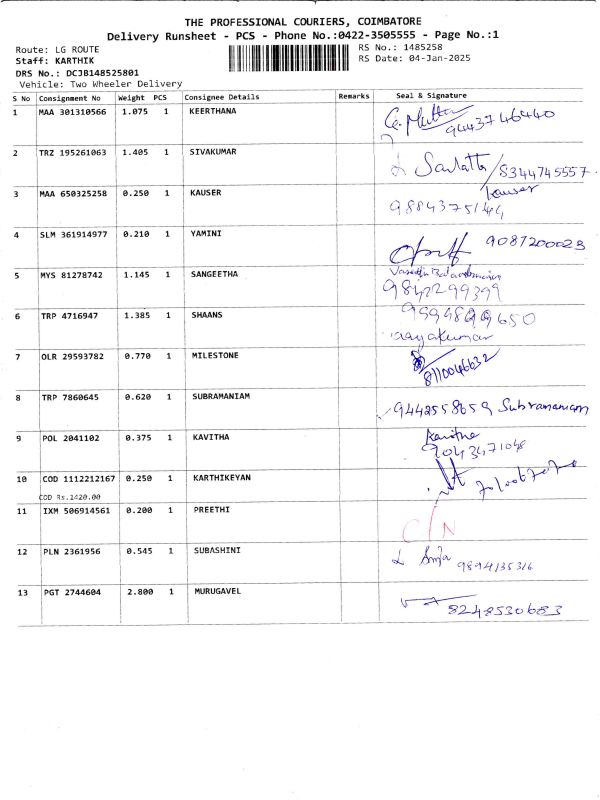 THE PROFESSIONAL COURIERS, COIMBATORE
Delivery Runsheet - PCS - Phone No.:0422-3505555 - Page No.:1
Route: LG ROUTE RS No.: 1485258
Staff: KARTHIK RS Date: 04-Jan-2025
DRS No.: DCJB148525801
Vehicle: Two Wheeler Delivery
S No Consignment No Weight PCS Consignee Details Remarks Seal & Signature
1 MAA 301310566 1.075 1 KEERTHANA
9443746440
2 TRZ 195261063 1.405 1 SIVAKUMAR
8344745557
3 MAA 650325258 0.250 1 KAUSER kauser
9884375144
4 SLM 361914977 0.210 1 YAMINI 9087200023
5 MYS 81278742 1.145 1 SANGEETHA
9842299399
6 TRP 4716947 1.385 1 SHAANS
7 OLR 29593782 0.770 1 MILESTONE
8110046632
8 TRP 7860645 0.620 1 SUBRAMANIAM
9442558659 Subramaniam
9 POL 2041102 0.375 1 KAVITHA Kavitha
9043471048
10 COD 1112212167 0.250 1 KARTHIKEYAN
COD Rs.1420.00
11 IXM 506914561 0.200 1 PREETHI
C/N
12 PLN 2361956 0.545 1 SUBASHINI
9894135316
13 PGT 2744604 2.800 1 MURUGAVEL
8248530683